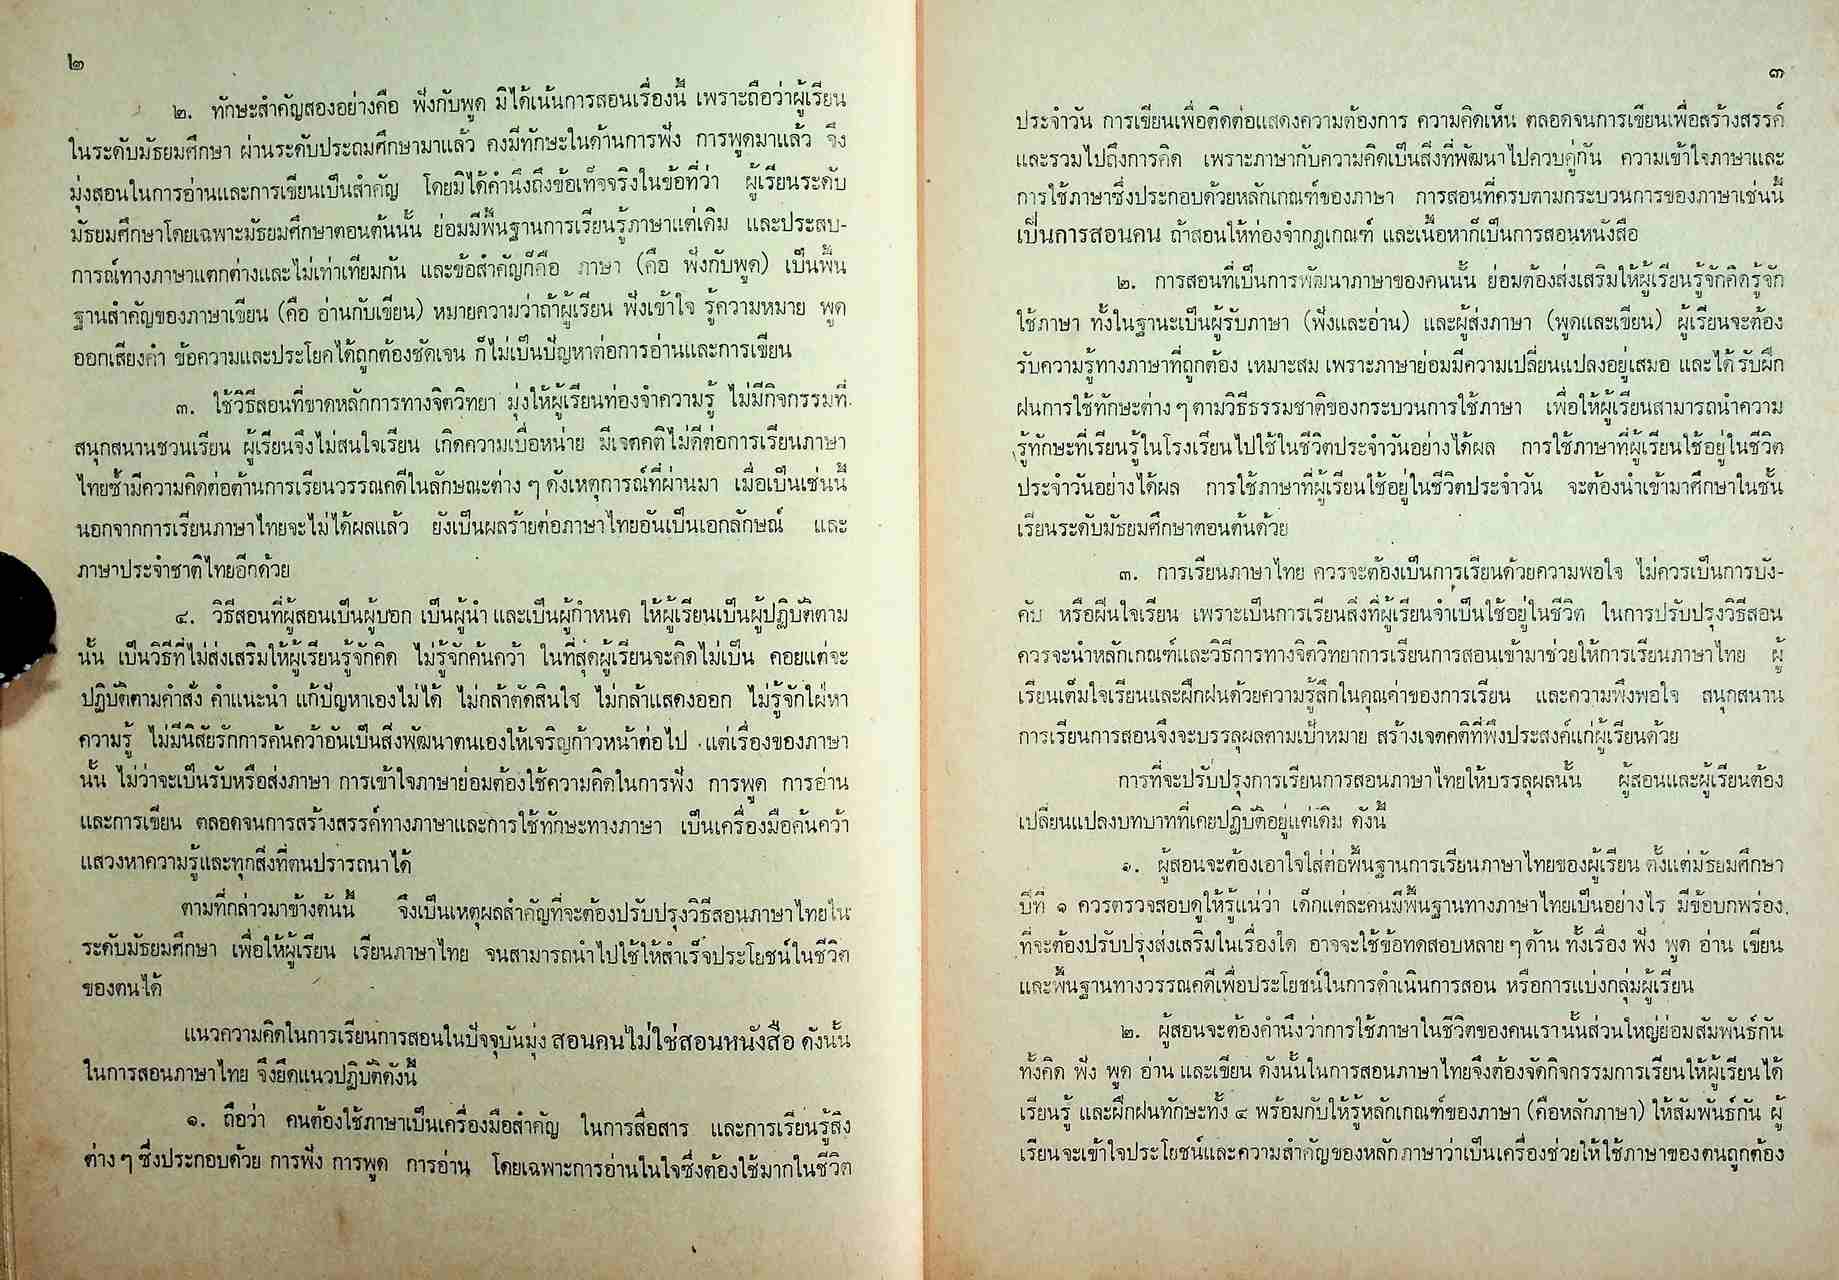 ๒
๒. ทักษะสำคัญสองอย่างคือ ฟังกับพูด มิได้เน้นการสอนเรื่องนี้ เพราะถือว่าผู้เรียน
ในระดับมัธยมศึกษา ผ่านระดับประถมศึกษามาแล้ว คงมีทักษะในด้านการฟัง การพูดมาแล้ว จึง
มุ่งสอนในการอ่านและการเขียนเป็นสำคัญ โดยมิได้คำนึงถึงข้อเท็จจริงในข้อที่ว่า ผู้เรียนระดับ
มัธยมศึกษาโดยเฉพาะมัธยมศึกษาตอนต้นนั้น ย่อมมีพื้นฐานการเรียนรู้ภาษาแต่เดิม และประสบ-
การณ์ทางภาษาแตกต่างและไม่เท่าเทียมกัน และข้อสำคัญก็คือ ภาษา (คือ ฟังกับพูด) เป็นพื้น
ฐานสำคัญของภาษาเขียน (คือ อ่านกับเขียน) หมายความว่าถ้าผู้เรียน ฟังเข้าใจ รู้ความหมาย พูด
ออกเสียงคำ ข้อความและประโยคได้ถูกต้องชัดเจน ก็ไม่เป็นปัญหาต่อการอ่านและการเขียน
๓. ใช้วิธีสอนที่ขาดหลักการทางจิตวิทยา มุ่งให้ผู้เรียนท่องจำความรู้ ไม่มีกิจกรรมที่
สนุกสนานชวนเรียน ผู้เรียนจึงไม่สนใจเรียน เกิดความเบื่อหน่าย มีเจตคติไม่ดีต่อการเรียนภาษา
ไทยซ้ำมีความคิดต่อต้านการเรียนวรรณคดีในลักษณะต่าง ๆ ดังเหตุการณ์ที่ผ่านมา เมื่อเป็นเช่นนี้
นอกจากการเรียนภาษาไทยจะไม่ได้ผลแล้ว ยังเป็นผลร้ายต่อภาษาไทยอันเป็นเอกลักษณ์ และ
ภาษาประจำชาติไทยอีกด้วย
๔. วิธีสอนที่ผู้สอนเป็นผู้บอก เป็นผู้นำ และเป็นผู้กำหนด ให้ผู้เรียนเป็นผู้ปฏิบัติตาม
นั้น เป็นวิธีที่ไม่ส่งเสริมให้ผู้เรียนรู้จักคิด ไม่รู้จักค้นคว้า ในที่สุดผู้เรียนจะคิดไม่เป็น คอยแต่จะ
ปฏิบัติตามคำสั่ง คำแนะนำ แก้ปัญหาเองไม่ได้ ไม่กล้าตัดสินใจ ไม่กล้าแสดงออก ไม่รู้จักใฝ่หา
ความรู้ ไม่มีนิสัยรักการค้นคว้าอันเป็นสิ่งพัฒนาตนเองให้เจริญก้าวหน้าต่อไป แต่เรื่องของภาษา
นั้น ไม่ว่าจะเป็นรับหรือส่งภาษา การเข้าใจภาษาย่อมต้องใช้ความคิดในการฟัง การพูด การอ่าน
และการเขียน ตลอดจนการสร้างสรรค์ทางภาษาและการใช้ทักษะทางภาษา เป็นเครื่องมือค้นคว้า
แสวงหาความรู้และทุกสิ่งที่ตนปรารถนาได้
ตามที่กล่าวมาข้างต้นนี้ จึงเป็นเหตุผลสำคัญที่จะต้องปรับปรุงวิธีสอนภาษาไทยใน
ระดับมัธยมศึกษา เพื่อให้ผู้เรียน เรียนภาษาไทย จนสามารถนำไปใช้ให้สำเร็จประโยชน์ในชีวิต
ของตนได้
แนวความคิดในการเรียนการสอนในปัจจุบันมุ่ง สอนคนไม่ใช่สอนหนังสือ ดังนั้น
ในการสอนภาษาไทย จึงยึดแนวปฏิบัติดังนี้
๑. ถือว่า คนต้องใช้ภาษาเป็นเครื่องมือสำคัญ ในการสื่อสาร และการเรียนรู้สิ่ง
ต่าง ๆ ซึ่งประกอบด้วย การฟัง การพูด การอ่าน โดยเฉพาะการอ่านในใจซึ่งต้องใช้มากในชีวิต
๓
ประจำวัน การเขียนเพื่อติดต่อแสดงความต้องการ ความคิดเห็น ตลอดจนการเขียนเพื่อสร้างสรรค์
และรวมไปถึงการคิด เพราะภาษากับความคิดเป็นสิ่งที่พัฒนาไปควบคู่กัน ความเข้าใจภาษาและ
การใช้ภาษาซึ่งประกอบด้วยหลักเกณฑ์ของภาษา การสอนที่ครบตามกระบวนการของภาษาเช่นนี้
เป็นการสอนคน ถ้าสอนให้ท่องจำกฎเกณฑ์ และเนื้อหาก็เป็นการสอนหนังสือ
๒. การสอนที่เป็นการพัฒนาภาษาของคนนั้น ย่อมต้องส่งเสริมให้ผู้เรียนรู้จักคิดรู้จัก
ใช้ภาษา ทั้งในฐานะเป็นผู้รับภาษา (ฟังและอ่าน) และผู้ส่งภาษา (พูดและเขียน) ผู้เรียนจะต้อง
รับความรู้ทางภาษาที่ถูกต้อง เหมาะสม เพราะภาษาย่อมมีความเปลี่ยนแปลงอยู่เสมอ และได้รับฝึก
ฝนการใช้ทักษะต่าง ๆ ตามวิธีธรรมชาติของกระบวนการใช้ภาษา เพื่อให้ผู้เรียนสามารถนำความ
รู้ทักษะที่เรียนรู้ในโรงเรียนไปใช้ในชีวิตประจำวันอย่างได้ผล การใช้ภาษาที่ผู้เรียนใช้อยู่ในชีวิต
ประจำวันอย่างได้ผล การใช้ภาษาที่ผู้เรียนใช้อยู่ในชีวิตประจำวัน จะต้องนำเข้ามาศึกษาในชั้น
เรียนระดับมัธยมศึกษาตอนต้นด้วย
๓. การเรียนภาษาไทย ควรจะต้องเป็นการเรียนด้วยความพอใจ ไม่ควรเป็นการบัง-
คับ หรือฝืนใจเรียน เพราะเป็นการเรียนสิ่งที่ผู้เรียนจำเป็นใช้อยู่ในชีวิต ในการปรับปรุงวิธีสอน
ควรจะนำหลักเกณฑ์และวิธีการทางจิตวิทยาการเรียนการสอนเข้ามาช่วยให้การเรียนภาษาไทย ผู้
เรียนเต็มใจเรียนและฝึกฝนด้วยความรู้สึกในคุณค่าของการเรียน และความพึงพอใจ สนุกสนาน
การเรียนการสอนจึงจะบรรลุผลตามเป้าหมาย สร้างเจตคติที่พึงประสงค์แก่ผู้เรียนด้วย
การที่จะปรับปรุงการเรียนการสอนภาษาไทยให้บรรลุผลนั้น ผู้สอนและผู้เรียนต้อง
เปลี่ยนแปลงบทบาทที่เคยปฏิบัติอยู่แต่เดิม ดังนี้
๑. ผู้สอนจะต้องเอาใจใส่ต่อพื้นฐานการเรียนภาษาไทยของผู้เรียน ตั้งแต่มัธยมศึกษา
ปีที่ ๑ ควรตรวจสอบดูให้รู้แน่ว่า เด็กแต่ละคนมีพื้นฐานทางภาษาไทยเป็นอย่างไร มีข้อบกพร่อง
ที่จะต้องปรับปรุงส่งเสริมในเรื่องใด อาจจะใช้ข้อทดสอบหลาย ๆ ด้าน ทั้งเรื่อง ฟัง พูด อ่าน เขียน
และพื้นฐานทางวรรณคดีเพื่อประโยชน์ในการดำเนินการสอน หรือการแบ่งกลุ่มผู้เรียน
๒. ผู้สอนจะต้องคำนึงว่าการใช้ภาษาในชีวิตของคนเรานั้นส่วนใหญ่ย่อมสัมพันธ์กัน
ทั้งคิด ฟัง พูด อ่าน และเขียน ดังนั้นในการสอนภาษาไทยจึงต้องจัดกิจกรรมการเรียนให้ผู้เรียนได้
เรียนรู้ และฝึกฝนทักษะทั้ง ๔ พร้อมกับให้รู้หลักเกณฑ์ของภาษา (คือหลักภาษา) ให้สัมพันธ์กัน ผู้
เรียนจะเข้าใจประโยชน์และความสำคัญของหลักภาษาว่าเป็นเครื่องช่วยให้ใช้ภาษาของตนถูกต้อง